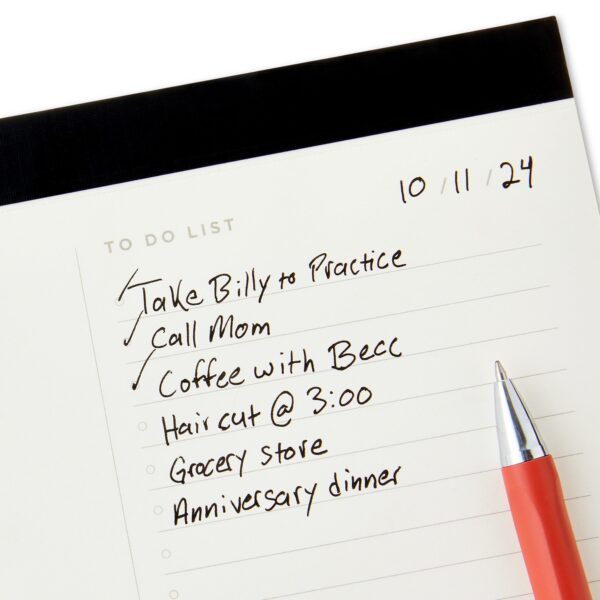 10 / 11 / 24
TO DO LIST
Take Billy to Practice
Call Mom
Coffee with Becc
Hair cut @ 3:00
Grocery store
Anniversary dinner